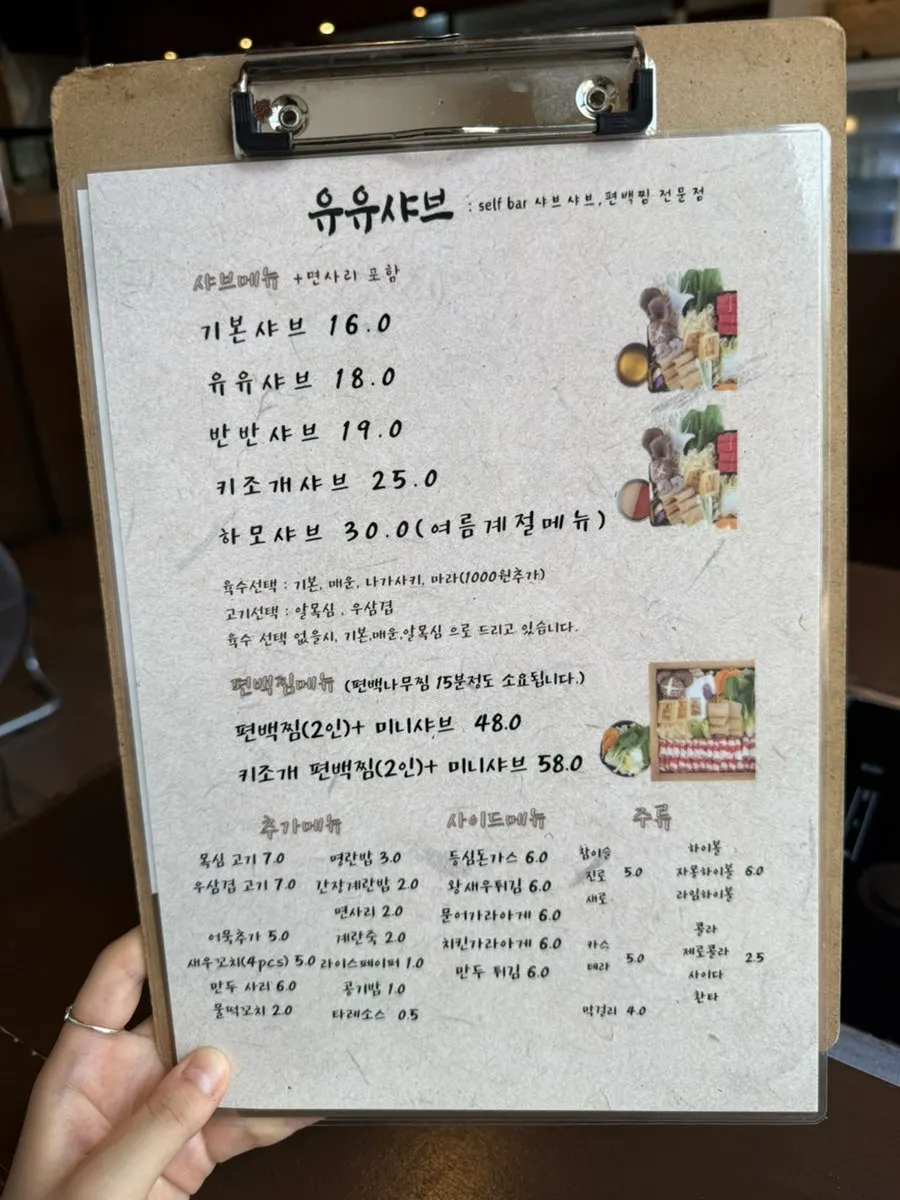 유유샤브 : self bar 샤브샤브, 편백찜 전문점
샤브메뉴 +면사리 포함
기본샤브 16.0
유유샤브 18.0
반반샤브 19.0
키조개샤브 25.0
하모샤브 30.0(여름계절메뉴)
육수선택 : 기본, 매운, 나가사키, 마라(1000원추가)
고기선택 : 알목심 , 우삼겹
육수 선택 없을시, 기본,매운,알목심 으로 드리고 있습니다.
편백찜메뉴 (편백나무찜 15분정도 소요됩니다.)
편백찜(2인)+ 미니샤브 48.0
키조개 편백찜(2인)+ 미니샤브 58.0
추가메뉴
목심 고기 7.0
우삼겹 고기 7.0
어묵추가 5.0
새우꼬치(4pcs) 5.0
만두 사리 6.0
물떡꼬치 2.0
명란밥 3.0
간장계란밥 2.0
면사리 2.0
계란죽 2.0
라이스페이퍼 1.0
공기밥 1.0
타레소스 0.5
사이드메뉴
등심돈가스 6.0
왕새우튀김 6.0
문어가라아게 6.0
치킨가라아게 6.0
만두 튀김 6.0
주류
참이슬
진로 5.0
새로
카스
테라 5.0
막걸리 4.0
하이볼
자몽하이볼 6.0
라임하이볼
콜라
제로콜라 2.5
사이다
환타